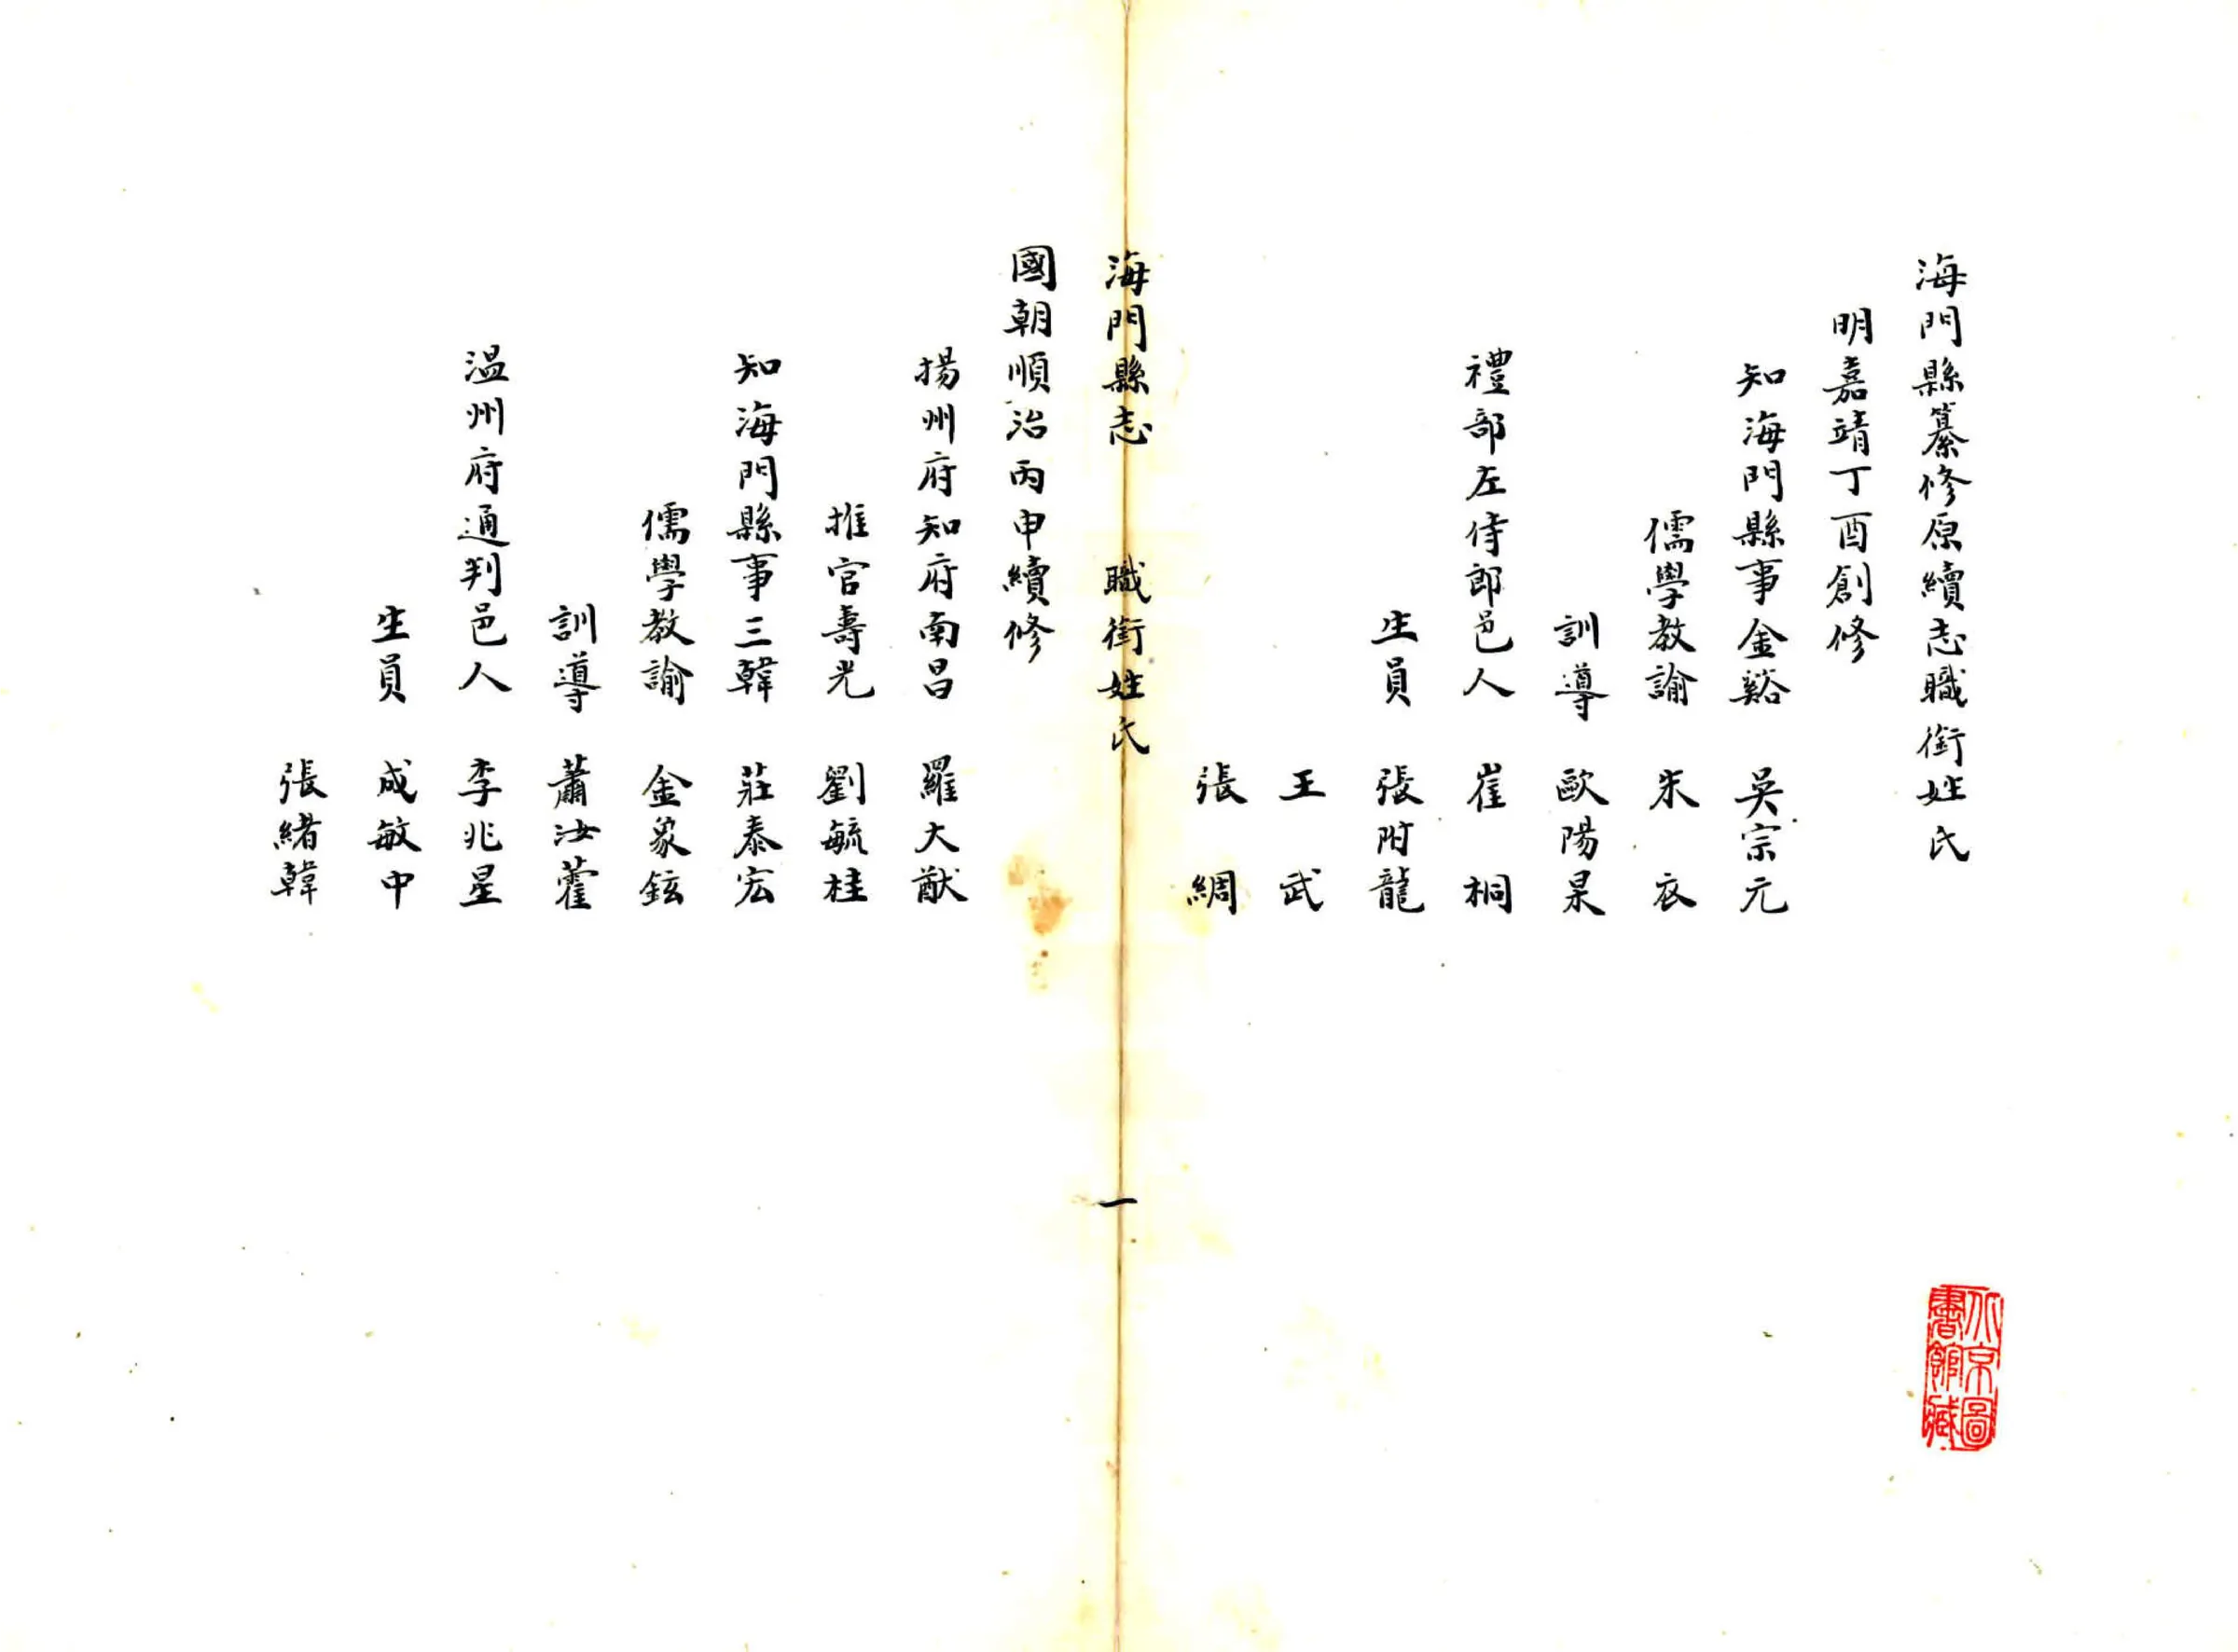 海門縣纂修原續志職銜姓氏
明嘉靖丁酉創修
知海門縣事金谿 吳宗元
儒學教諭 朱衣
訓導 歐陽杲
禮部左侍郎邑人 崔桐
生員 張附龍
王武
張綢
海門縣志 職銜姓氏 一
國朝順治丙申續修
揚州府知府南昌 羅大猷
推官壽光 劉毓桂
知海門縣事三韓 莊泰宏
儒學教諭 金象鉉
訓導 蕭汝藿
溫州府通判邑人 李兆星
生員 成敏中
張緒韓
北京圖
書館藏